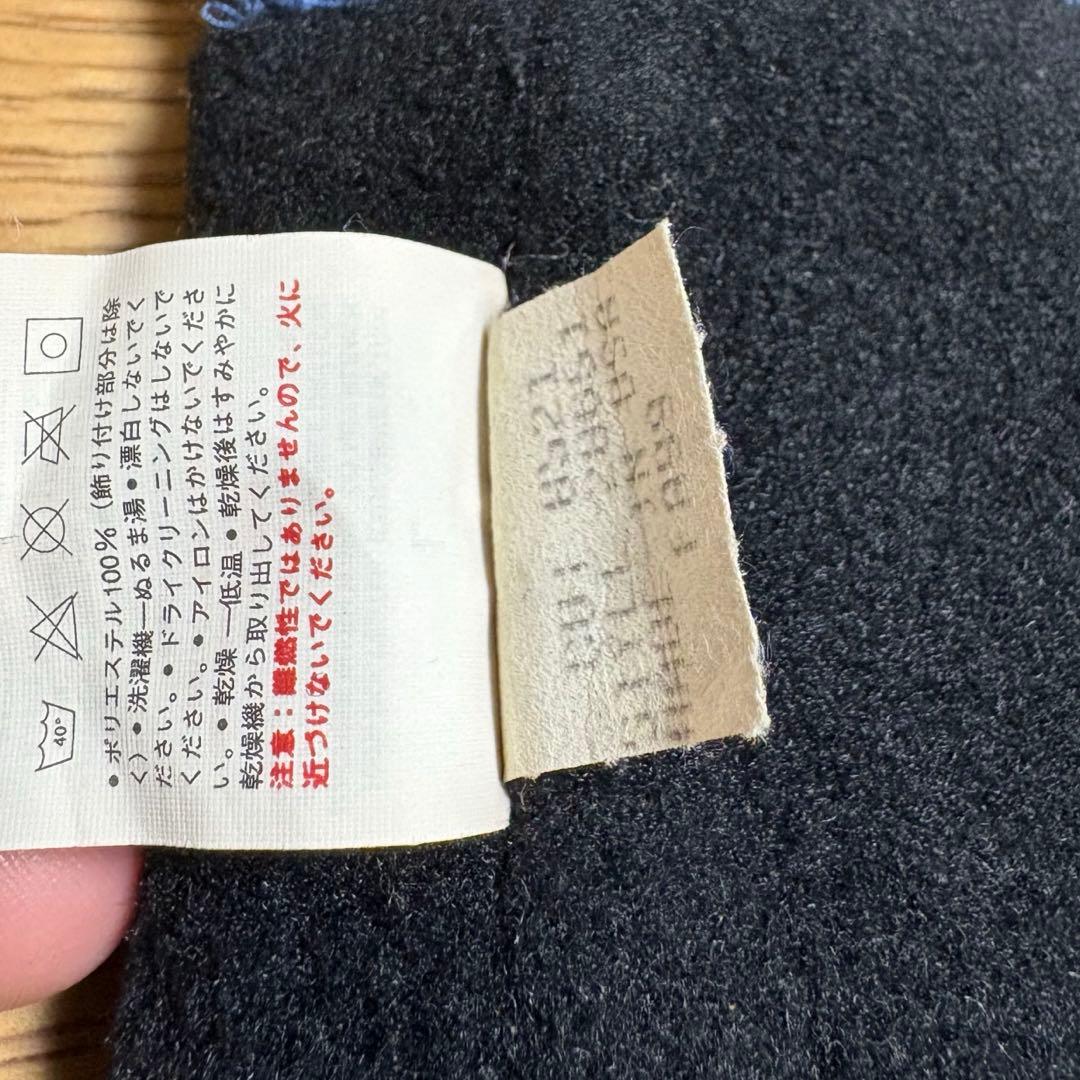 40°
• ポリエステル100%（飾り付け部分は除
く）• 洗濯機—ぬるま湯 • 漂白しないでく
ださい。• ドライクリーニングはしないで
ください。• アイロンはかけないでくださ
い。• 乾燥 —低温 • 乾燥後はすみやかに
乾燥機から取り出してください。
注意：難燃性ではありませんので、火に
近づけないでください。